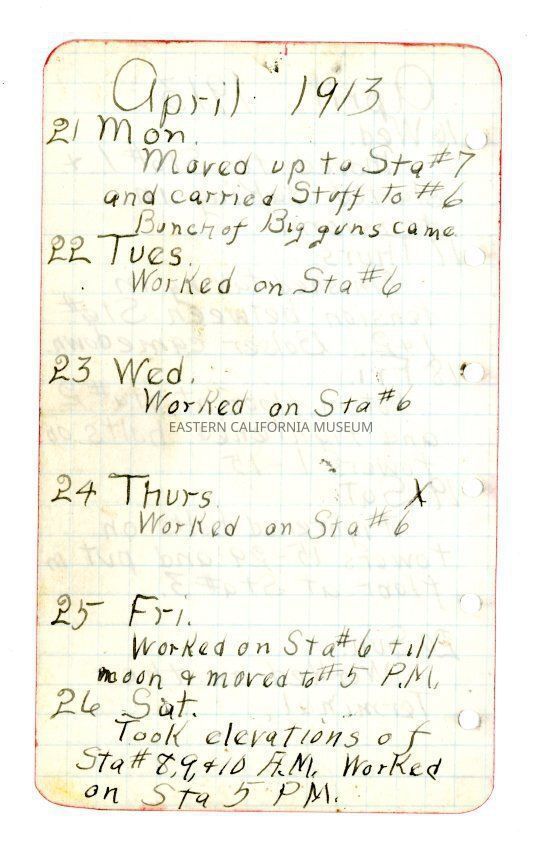 April 1913
21 Mon.
Moved up to Sta #7
and carried Stuff to #6
Bunch of Big guns came
22 Tues.
Worked on Sta #6
23 Wed.
Worked on Sta #6
EASTERN CALIFORNIA MUSEUM
24 Thurs. X
Worked on Sta #6
25 Fri.
Worked on Sta #6 till
noon & moved to #5 P.M.
26 Sat.
Took elevations of
Sta #8,9,&10 A.M. Worked
on Sta 5 P.M.